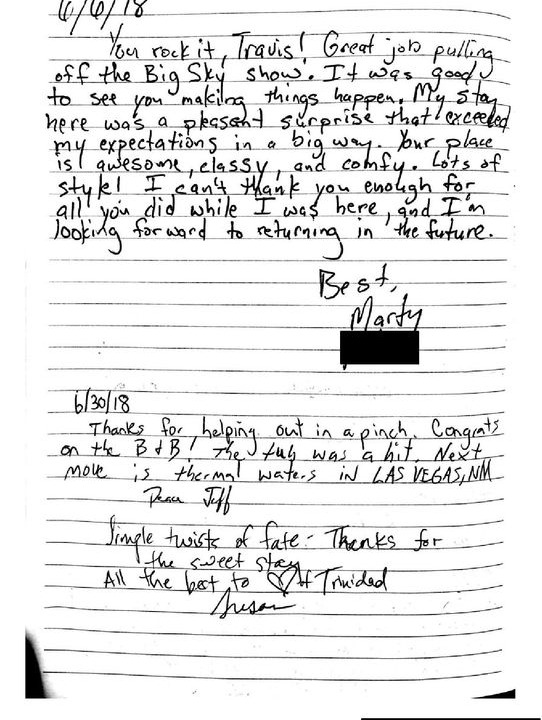 6/6/18
You rock it, Travis! Great job pulling
off the Big Sky show. It was good
to see you making things happen. My stay
here was a pleasant surprise that exceeded
my expectations in a big way. Your place
is awesome, classy, and comfy. Lots of
style! I can't thank you enough for
all you did while I was here, and I'm
looking forward to returning in the future.
Best,
Marty
6/30/18
Thanks for helping out in a pinch. Congrats
on the B & B! The tub was a hit. Next
move is thermal waters in LAS VEGAS, NM
Peace Jeff
Simple twists of fate - Thanks for
the sweet stay
All the best to ♡ of Trinidad
Susan